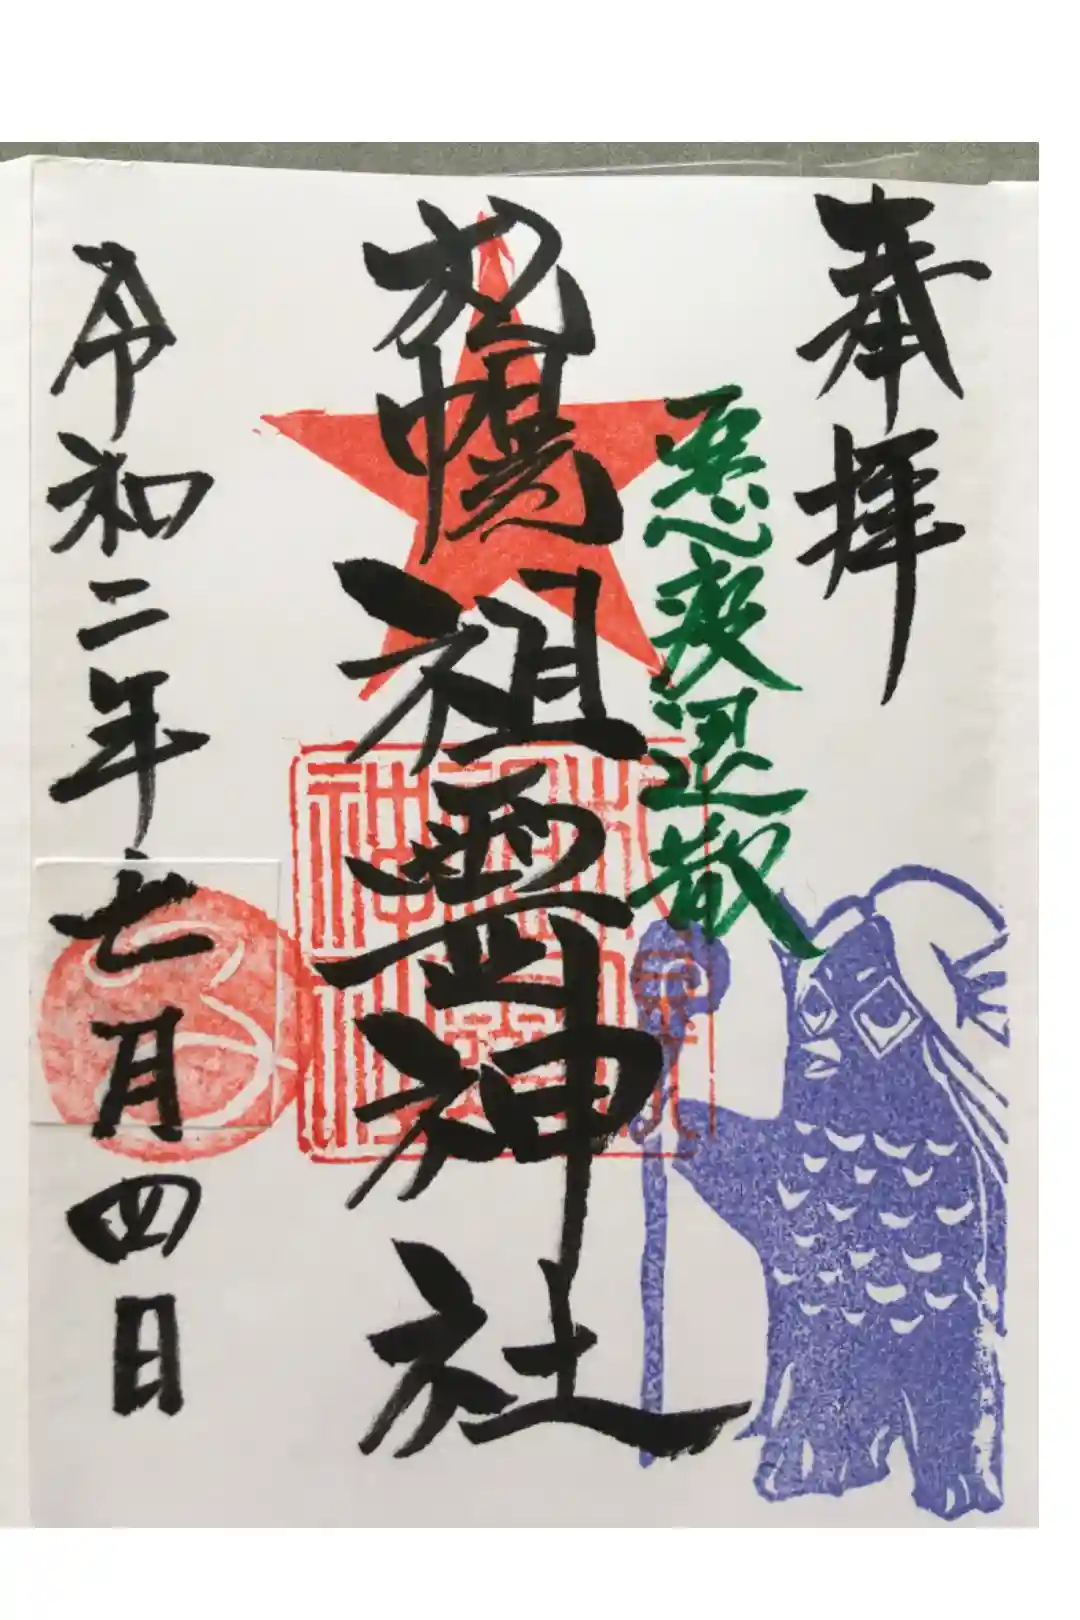 奉拝
悪疫退散
札幌祖霊神社
令和二年七月四日